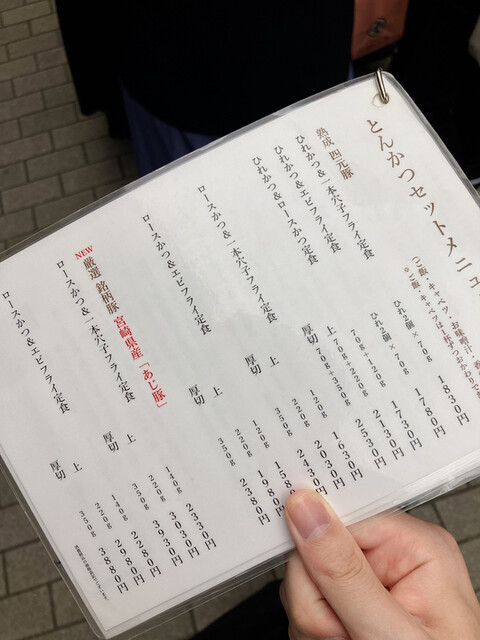 とんかつセットメニュ
（ご飯・キャベツ・お味噌汁・
※ご飯・キャベツは一杯ずつおかわりでき
熟成 四元豚
ひれかつ&一本穴子フライ定食 ひれ2個×70g 1830円
ひれかつ&エビフライ定食 ひれ2個×70g 1780円
ひれかつ&ロースかつ定食 70g+120g 1730円
上 70g+220g 2130円
厚切 70g+350g 2530円
ロースかつ&一本穴子フライ定食 120g 1630円
上 220g 2030円
厚切 350g 2430円
ロースかつ&エビフライ定食 120g 158
上 220g 1980円
厚切 350g 2380円
NEW 厳選 銘柄豚 宮崎県産「あじ豚」
ロースかつ&一本穴子フライ定食 140g 2330円
上 220g 3030円
厚切 350g 3930円
ロースかつ&エビフライ定食 140g 2280円
上 220g 2980円
厚切 350g 3880円